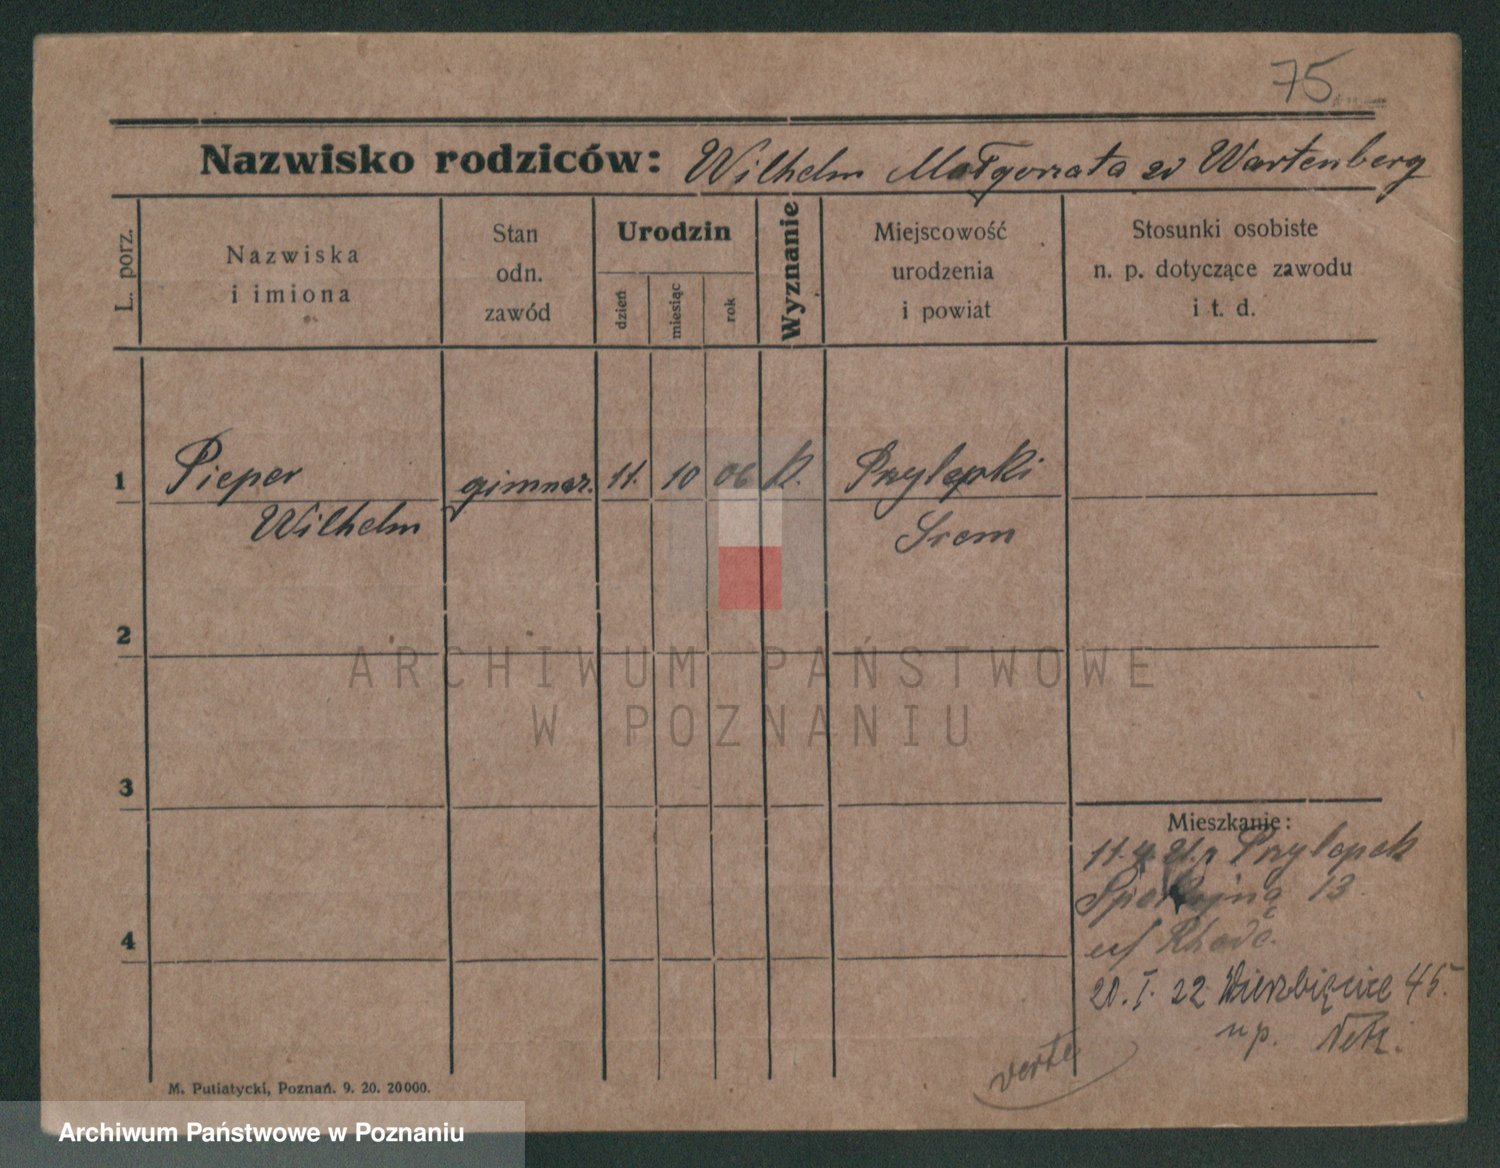 75
Nazwisko rodziców: Wilhelm Małgorzata zd Wartenberg
L. porz.
Nazwiska
i imiona
Stan
odn.
zawód
Urodzin
dzień
miesiąc
rok
Wyznanie
Miejscowość
urodzenia
i powiat
Stosunki osobiste
n. p. dotyczące zawodu
i t. d.
1 Pieper gimnaz. 11. 10 06 k. Przylepki
Wilhelm Srem
2
ARCHIWUM PAŃSTWOWE
W POZNANIU
3
Mieszkanie:
11.4.21 z Przylepek
Spokojna 13
4
20. I. 22 Wierzbięcice 45.
u p.
verte
M. Putiatycki, Poznań. 9. 20. 20000.
Archiwum Państwowe w Poznaniu